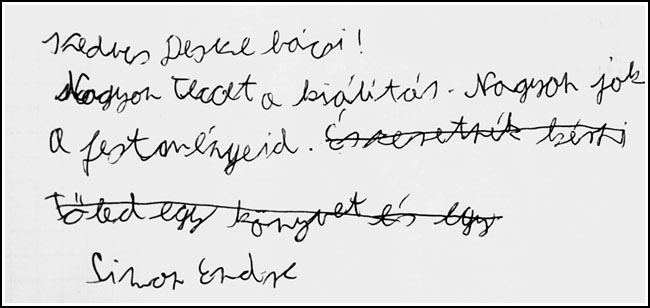 Kedves Deske bácsi!
Nagyon tecet a kiálitás. Nagyon jók
a festményeid. És szeretnék kérni
Tőled egy könyvet és egy
Simon Endre